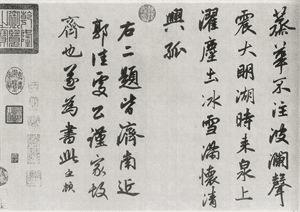 蒸華不注波瀾聲
震大明湖時来泉上
濯塵土冰雪滿懷清
興孤
右二題皆濟南近
郭佳處公謹家故
齊也遂為書此孟頫